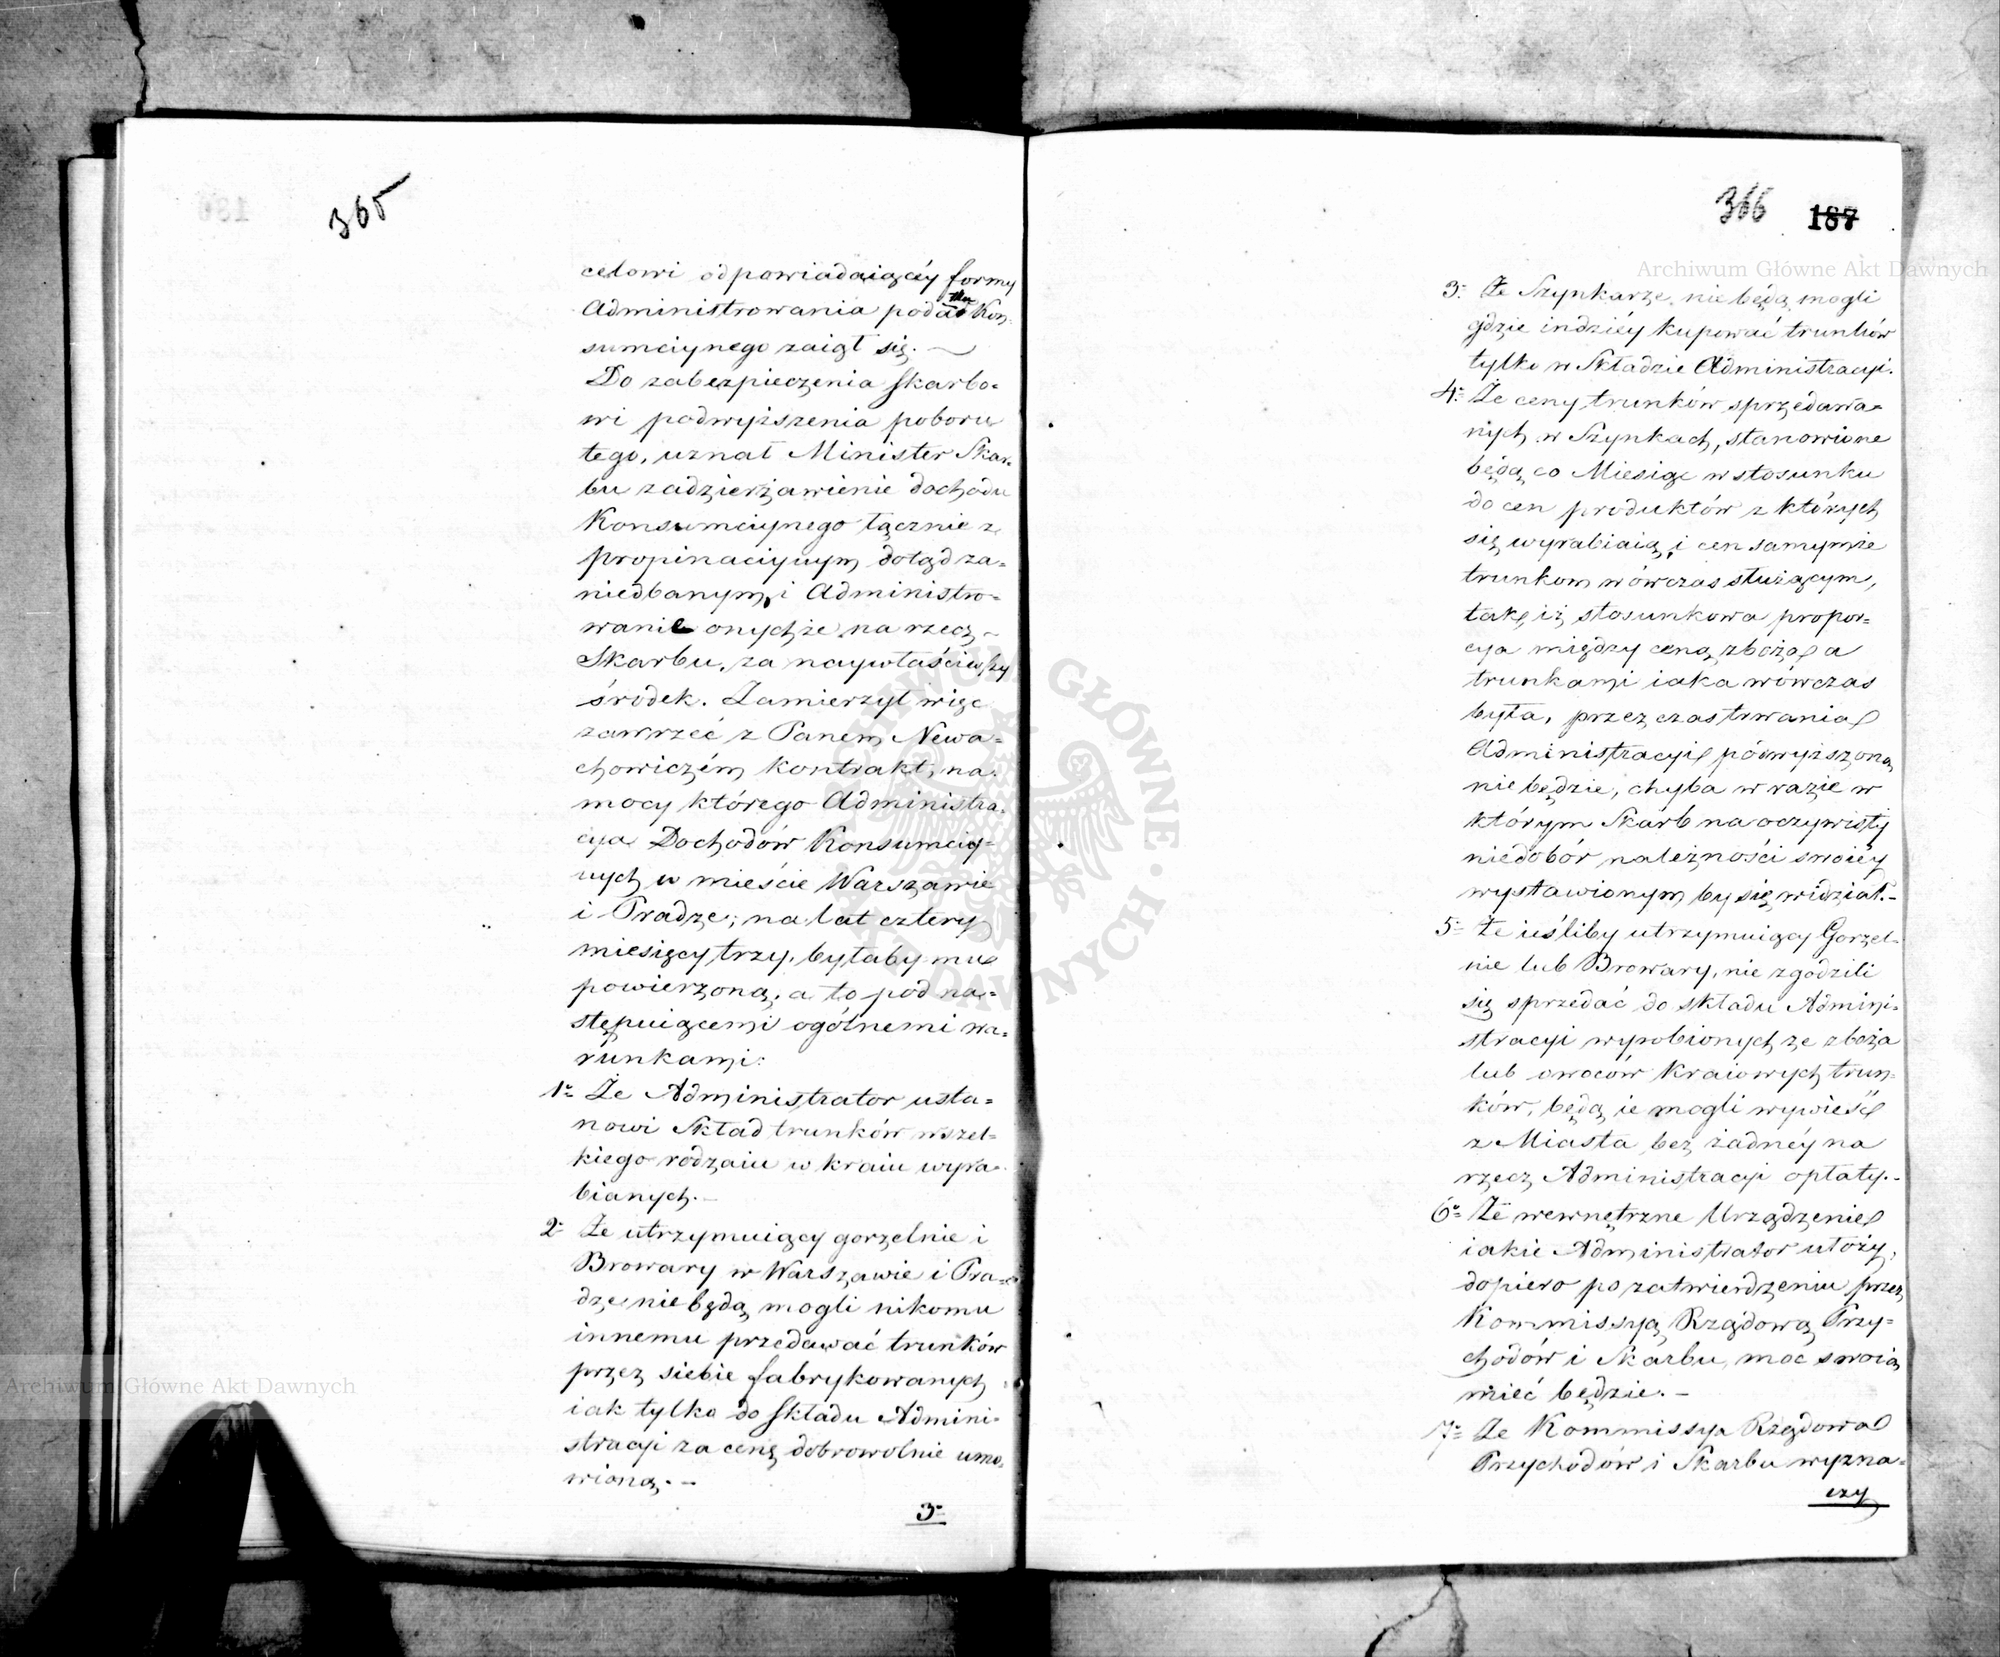 365
celowi odpowiadaiącéy formy
Administrowania podatku Kon-
sumcyinego zaiął się. —
Do zabezpieczenia Skarbo-
wi podwyższenia poboru
tego, uznał Minister Skar-
bu zadzierżawienie dochodu
Konsumciynego łącznie z
propinaciynym dotąd za-
niedbanym, i Administro-
wanie onychże na rzecz
Skarbu, za naywłaściwszy
środek. Zamierzył więc
zawrzeć z Panem Newa-
chowiczém kontrakt, na
mocy którego Administra-
cya Dochodów Konsumciy-
nych w mieście Warszawie
i Pradze, na lat cztery
miesięcy trzy, byłaby mu
powierzoną, a to pod na-
stępuiącemi ogólnemi wa-
runkami:
1o Że Administrator usta-
nowi Skład trunków wszel-
kiego rodzaiu w kraiu wyra-
bianych. —
2o Że utrzymuiący gorzelnie i
Browary w Warszawie i Pra-
dze nie będą mogli nikomu
innemu przedawać trunków
przez siebie fabrykowanych
iak tylko do Składu Admini-
stracyi za cenę dobrowolnie umo-
wioną. —
3o
366 187
3o Że Szynkarze, nie będą mogli
gdzie indziéy kupować trunków
tylko w Składzie Administracyi.
4o Że ceny trunków sprzedawa-
nych w Szynkach, stanowione
będą co Miesiąc w stosunku
do cen produktów z których
się wyrabiaią, i cen samymże
trunkom wówczas służącym,
tak, iż stosunkowa propor-
cya między ceną zboża a
trunkami iaka wówczas
była, przez czas trwania
Administracyi podwyższoną
nie będzie, chyba w razie w
którym Skarb na oczywisty
niedobór należności swoiéy
wystawionym by się widział. —
5o Że ieśliby utrzymuiący Gorzel-
nie lub Browary, nie zgodzili
się sprzedać do składu Admini-
stracyi wyrobionych ze zboża
lub owoców Kraiowych trun-
ków, będą ie mogli wywieść
z Miasta bez żadnéy na
rzecz Administracyi opłaty. —
6o Że wewnętrzne Urządzenie
iakie Administrator ułoży,
dopiero po zatwierdzeniu przez
Kommissyą Rządową Przy-
chodów i Skarbu, moc swoią
mieć będzie. —
7o Że Kommissya Rządowa
Przychodów i Skarbu wyzna-
czy
Archiwum Główne Akt Dawnych
Archiwum Główne Akt Dawnych